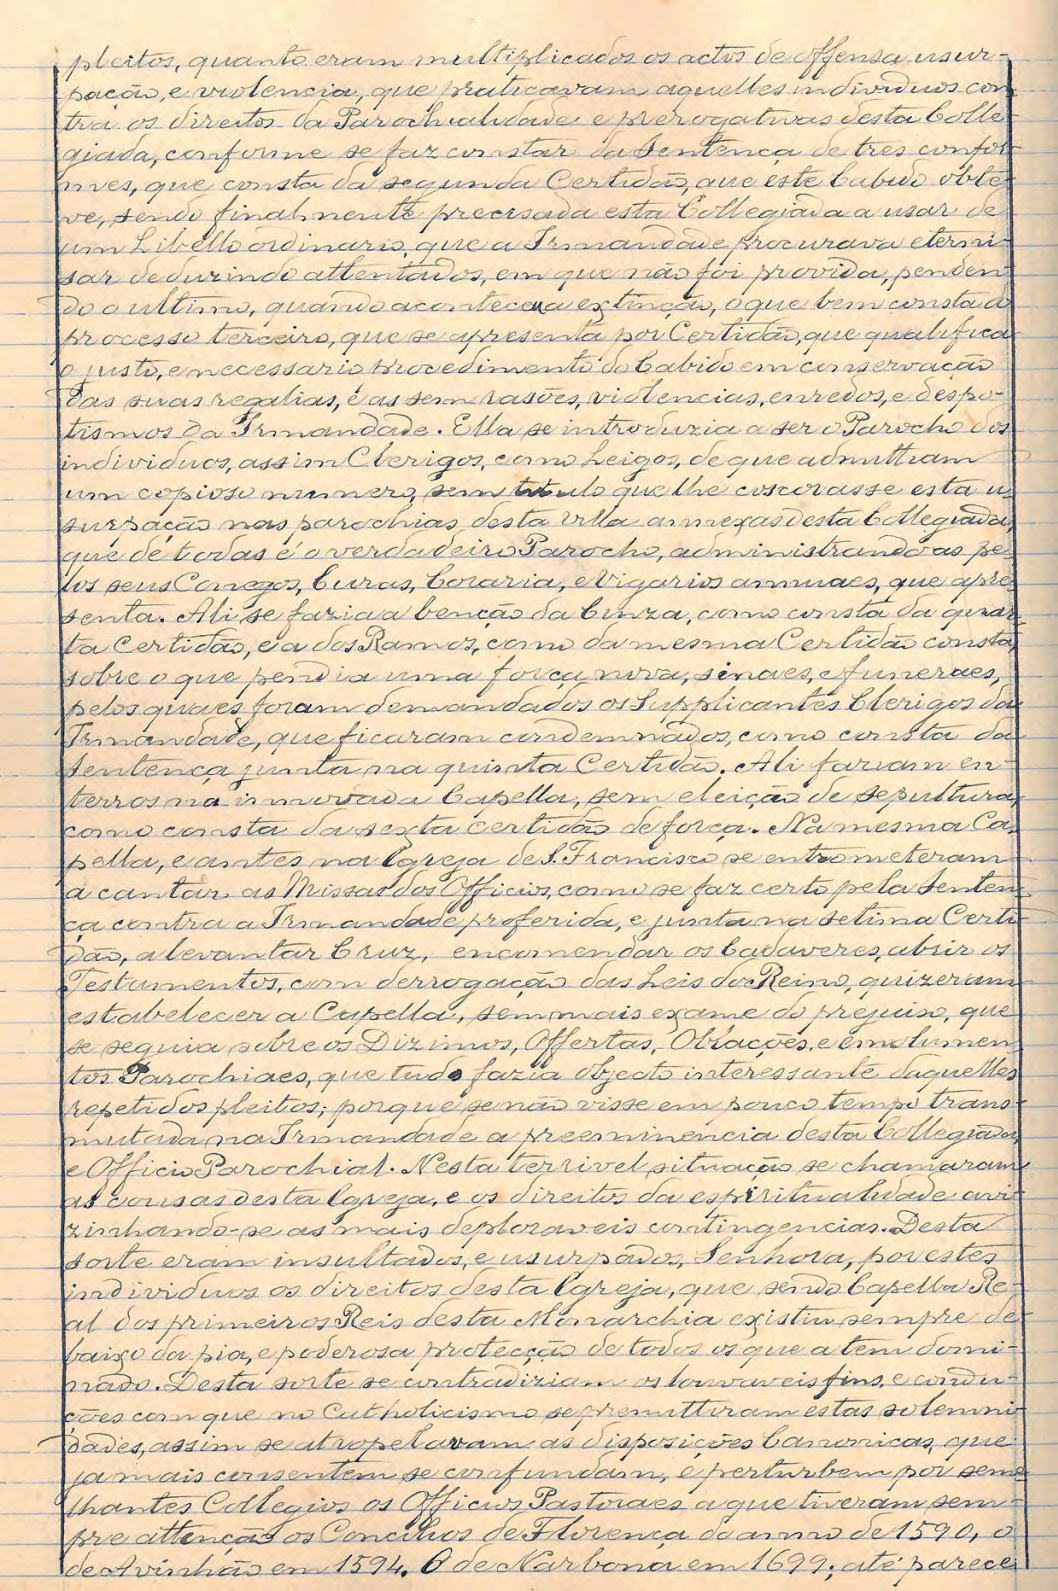 pleitos, quanto eram multiplicados os actos de offensa usur-
pação, e violencia, que praticavam aquelles individuos con
tra os direitos da Parochialidade e prerogativas desta Colle
giada, conforme se faz constar da Sentença de tres confor
mes, que consta da segunda Certidão, que este Cabido obte
ve, sendo finalmente precisada esta Collegiada a usar de
um Libello ordinario, que a Irmandade procurava eterni-
sar deduzindo attentados, em que não foi provida, penden
do o ultimo, quando aconteceu a extinção, o que bem consta do
processo terceiro, que se apresenta por Certidão, que qualifica
o justo, e necessario procedimento do Cabido em conservação
das suas regalias, e as sem rasões, violencias, enredos, e despo-
tismos da Irmandade. Ella se introduzia a ser o Parocho dos
individuos, assim Clerigos, como Leigos, de que admittiam
um copioso numero, sem titulo que lhe coscorasse esta u
surpação nas parochias desta villa annexas desta Collegiada,
que de todas é o verdadeiro Parocho, administrando as pe
los seus Conegos, Curas, Coraria, e Vigarios annuaes, que apre
senta. Ali se fazia a benção da Cinza, como consta da quar
ta Certidão, e a dos Ramos, como da mesma Certidão consta,
sobre o que pendia uma força nova, sinaes, e funeraes,
pelos quaes foram demandados os Supplicantes Clerigos da
Irmandade, que ficaram condemnados, como consta da
Sentença junta na quinta Certidão. Ali faziam en-
terros na innovada Capella, sem eleição de sepultura,
como consta da sexta certidão de força. Na mesma Ca
pella, e antes na Igreja de S. Francisco se entrometeram
a cantar as Missas dos Officios, como se faz certo pela Senten
ça contra a Irmandade proferida, e junta na setima Certi
dão, a levantar Cruz, encomendar os Cadaveres, abrir os
Testamentos, com derrogação das Leis do Reino, quizeram
estabelecer a Capella, sem mais exame do prejuiso, que
se seguia sobre os Dizimos, Offertas, Oblações, e emolumen
tos Parochiaes, que tudo fazia objecto interessante daquelles
repetidos pleitos; porque se não visse em pouco tempo trans-
mutada na Irmandade a preeminencia desta Collegiada,
e Officio Parochial. Nesta terrivel situação se chamaram
as cousas desta Igreja, e os direitos da espiritualidade avi
zinhando-se as mais deploraveis contingencias. Desta
sorte eram insultados, e usurpados, Senhora, por estes
individuos os direitos desta Igreja, que sendo Capella Re-
al dos primeiros Reis desta Monarchia existiu sempre de
baixo da pia, e poderosa protecção de todos os que a tem domi-
nado. Desta sorte se contradiziam os louvaveis fins, e condi-
ções com que no Catholicismo se premittiram estas solemni
dades, assim se atropelavam as disposições Canonicas, que
ja mais consentem se confundam, e perturbem por seme
lhantes Collegios os Officios Pastoraes a que tiveram sem-
pre attenção os Concilios de Florença do anno de 1590, o
de Avinhão em 1594. O de Narbona em 1699; até parece